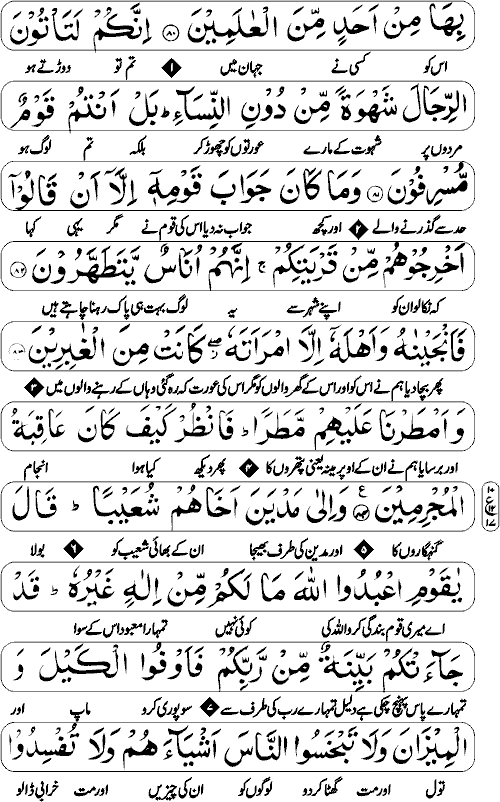 بِهَا مِنْ اَحَدٍ مِّنَ الْعٰلَمِيْنَ ﴿۸۰﴾ اِنَّكُمْ لَتَاْتُوْنَ
اس کو کسی نے جہان میں ۱ تم تو دوڑتے ہو
الرِّجَالَ شَهْوَةً مِّنْ دُوْنِ النِّسَآءِ ؕ بَلْ اَنْتُمْ قَوْمٌ
مردوں پر شہوت کے مارے عورتوں کو چھوڑ کر بلکہ تم لوگ ہو
مُّسْرِفُوْنَ ﴿۸۱﴾ وَمَا كَانَ جَوَابَ قَوْمِهٖۤ اِلَّاۤ اَنْ قَالُوْۤا
حد سے گذرنے والے ۲ اور کچھ جواب نہ دیا اس کی قوم نے مگر یہی کہا
اَخْرِجُوْهُمْ مِّنْ قَرْيَتِكُمْ ۚ اِنَّهُمْ اُنَاسٌ يَّتَطَهَّرُوْنَ ﴿۸۲﴾
کہ نکالو ان کو اپنے شہر سے یہ لوگ بہت ہی پاک رہنا چاہتے ہیں
فَاَنْجَيْنٰهُ وَاَهْلَهٗۤ اِلَّا امْرَاَتَهٗ ۖ كَانَتْ مِنَ الْغٰبِرِيْنَ ﴿۸۳﴾
پھر بچا دیا ہم نے اس کو اور اس کے گھر والوں کو مگر اس کی عورت کہ رہ گئی وہاں کے رہنے والوں میں ۳
وَاَمْطَرْنَا عَلَيْهِمْ مَّطَرًا ؕ فَانْظُرْ كَيْفَ كَانَ عَاقِبَةُ
اور برسایا ہم نے ان کے اوپر مینہ یعنی پتھروں کا ۴ پھر دیکھ کیا ہوا انجام
الْمُجْرِمِيْنَ ﴿۸۴﴾ ع وَاِلٰى مَدْيَنَ اَخَاهُمْ شُعَيْبًا ؕ قَالَ
گنہگاروں کا ۵ اور مدین کی طرف بھیجا ان کے بھائی شعیب کو ۶ بولا
يٰقَوْمِ اعْبُدُوا اللّٰهَ مَا لَكُمْ مِّنْ اِلٰهٍ غَيْرُهٗ ؕ قَدْ
اے میری قوم بندگی کرو اللہ کی کوئی نہیں تمہارا معبود اس کے سوا
جَآءَتْكُمْ بَيِّنَةٌ مِّنْ رَّبِّكُمْ فَاَوْفُوا الْكَيْلَ وَ
تمہارے پاس پہنچ چکی ہے دلیل تمہارے رب کی طرف سے ۷ سو پوری کرو ماپ اور
الْمِيْزَانَ وَلَا تَبْخَسُوا النَّاسَ اَشْيَآءَهُمْ وَلَا تُفْسِدُوْا
تول اور مت گھٹا کر دو لوگوں کو ان کی چیزیں اور مت خرابی ڈالو